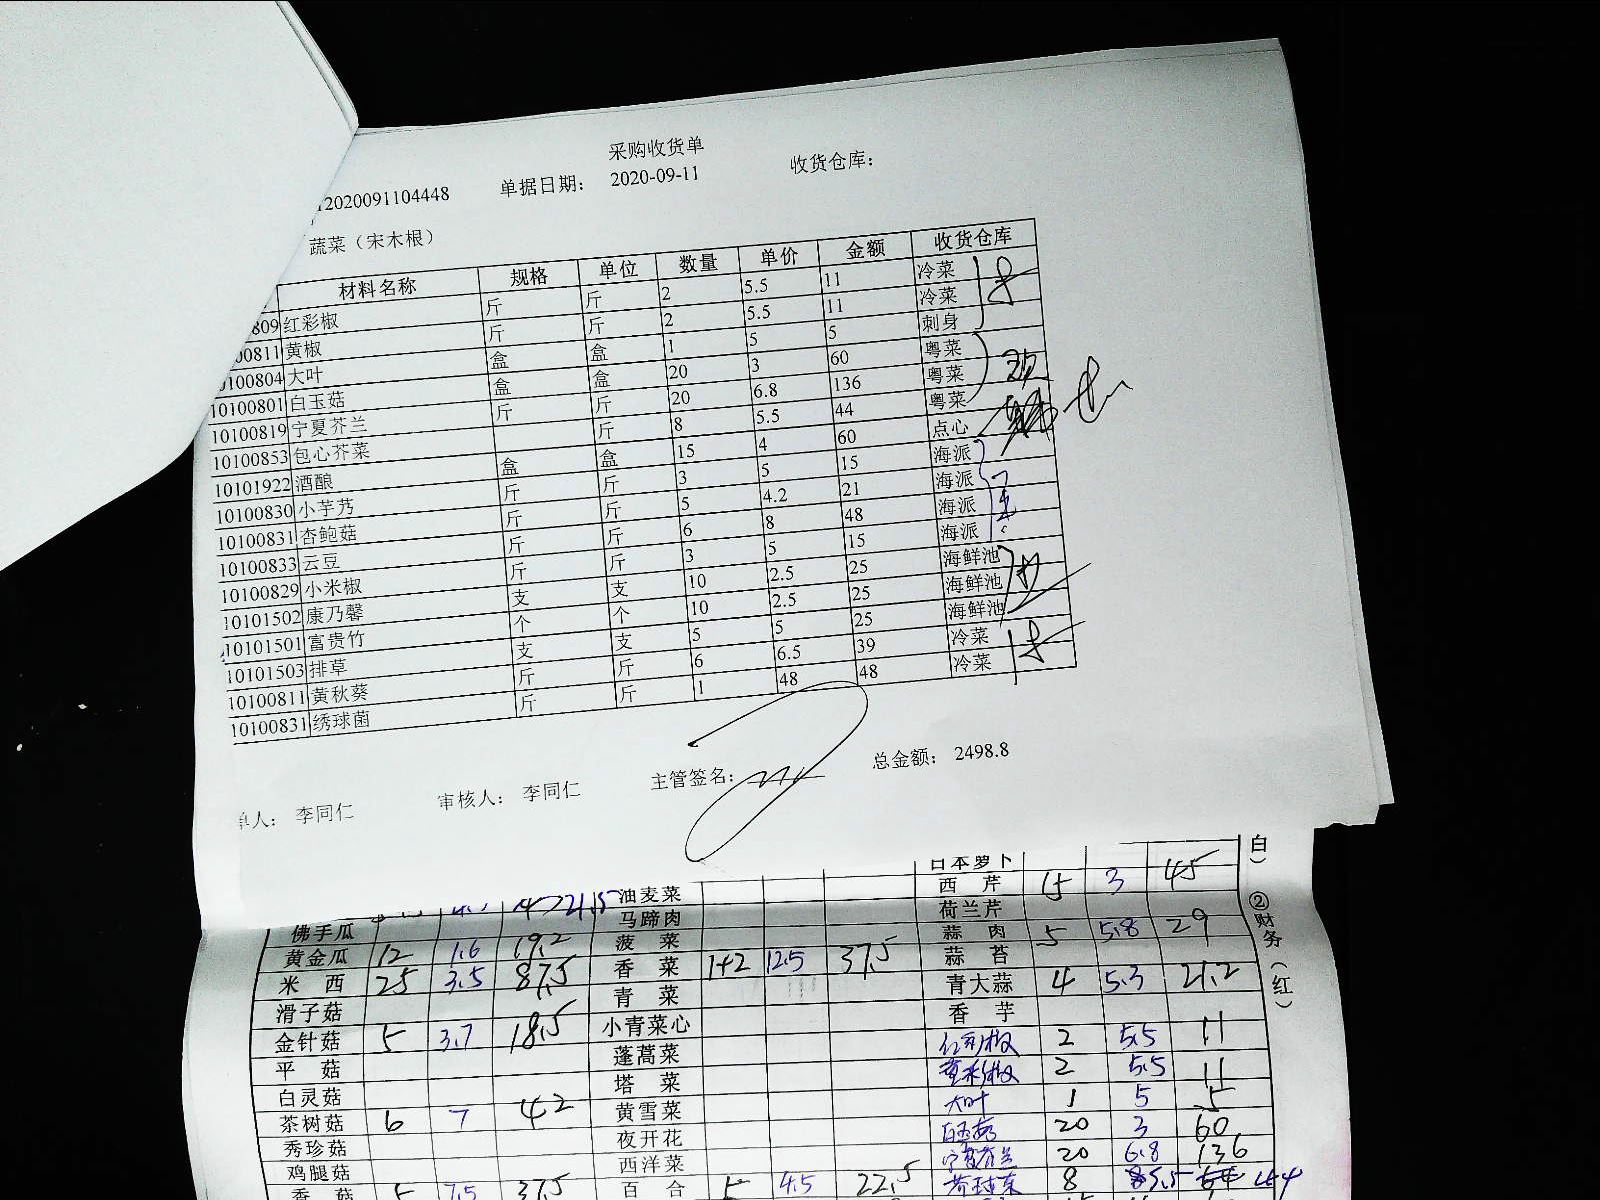 采购收货单
12020091104448 单据日期： 2020-09-11 收货仓库：
蔬菜（宋木根）
材料名称 规格 单位 数量 单价 金额 收货仓库
809 红彩椒 斤 斤 2 5.5 11 冷菜
00811 黄椒 斤 斤 2 5.5 11 冷菜
0100804 大叶 盒 盒 1 5 5 刺身
10100801 白玉菇 盒 盒 20 3 60 粤菜
10100819 宁夏芥兰 斤 斤 20 6.8 136 粤菜
10100853 包心芥菜 斤 8 5.5 44 粤菜
10101922 酒酿 盒 盒 15 4 60 点心
10100830 小芋艿 斤 斤 3 5 15 海派
10100831 杏鲍菇 斤 斤 5 4.2 21 海派
10100833 云豆 斤 斤 6 8 48 海派
10100829 小米椒 斤 斤 3 5 15 海派
10101502 康乃馨 支 支 10 2.5 25 海鲜池
10101501 富贵竹 个 个 10 2.5 25 海鲜池
10101503 排草 支 支 5 5 25 海鲜池
10100811 黄秋葵 斤 斤 6 6.5 39 冷菜
10100831 绣球菌 斤 斤 1 48 48 冷菜
单人： 李同仁 审核人： 李同仁 主管签名： 总金额： 2498.8
日本萝卜
油麦菜 西芹 15 3 45
佛手瓜 21.5 马蹄肉 荷兰芹
黄金瓜 12 1.6 19.2 菠菜 蒜肉 5 5.8 29
米西 25 3.5 87.5 香菜 1+2 12.5 37.5 蒜苔
滑子菇 青菜 青大蒜 4 5.3 21.2
金针菇 5 3.7 18.5 小青菜心 香芋
平菇 蓬蒿菜 红彩椒 2 5.5 11
白灵菇 塔菜 黄彩椒 2 5.5 11
茶树菇 6 7 42 黄雪菜 大叶 1 5 5
秀珍菇 夜开花 白玉菇 20 3 60
鸡腿菇 西洋菜 宁夏芥兰 20 6.8 136
香菇 5 7.5 37.5 百合 5 4.5 22.5 8 5.5 44
白）
②财务（红）